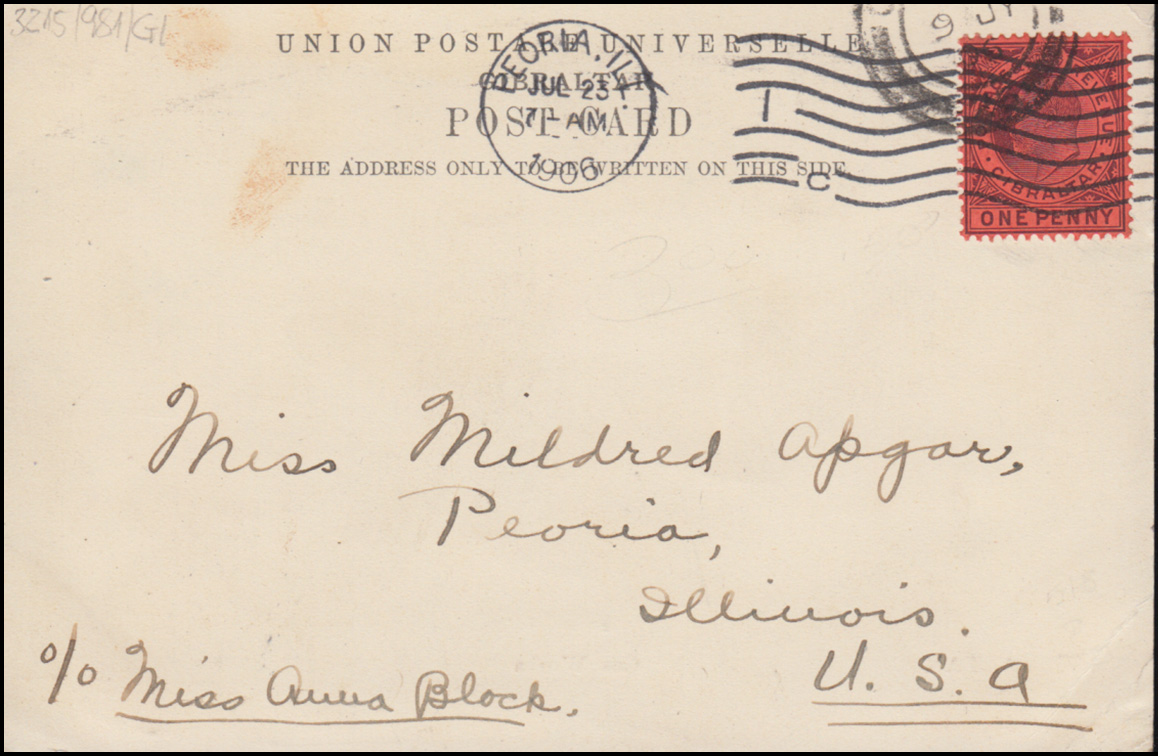 3215/981/GL
UNION POSTALE UNIVERSELLE
GIBRALTAR
POST CARD
THE ADDRESS ONLY TO BE WRITTEN ON THIS SIDE
PEORIA, ILL.
JUL 23
7 - AM
1906
1
C
9 JY
GIBRALTAR
ONE PENNY
Miss Mildred Apgar,
Peoria,
Illinois.
U. S. A
c/o Miss Anna Block.